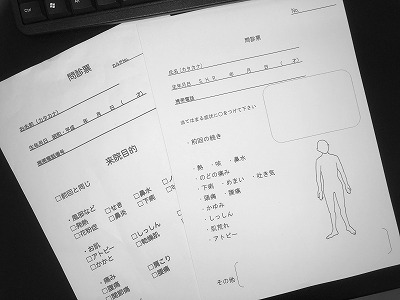 問診票
お名前（カタカナ）
生年月日 昭和・平成 年 月 日（ 才）
携帯電話番号
来院目的
□前回と同じ
・風邪など
□せき
□鼻水
□発熱
□鼻炎
□下痢
□花粉症
・お肌
□しっしん
□アトピー
□乾燥肌
□かかと
・痛み
□肩こり
□腹痛
□腰痛
□関節痛
No.
問診票
氏名（カタカナ）
生年月日 S H R 年 月 日（ 才）
携帯電話
当てはまる症状に○をつけて下さい
・前回の続き
・熱 ・咳 ・鼻水
・のどの痛み
・下痢 ・めまい ・吐き気
・頭痛 ・腰痛
・かゆみ
・しっしん
・肌荒れ
・アトピー
その他